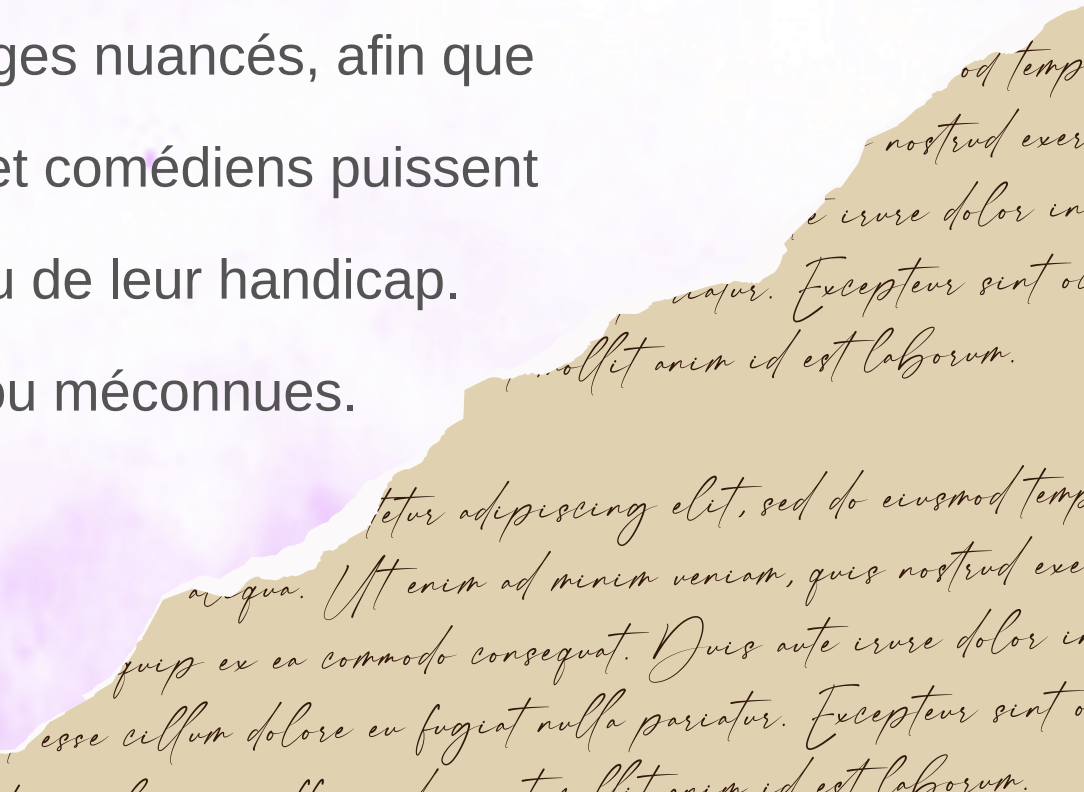 ges nuancés, afin que
et comédiens puissent
u de leur handicap.
ou méconnues.
od temp
nostrud exer
e irure dolor in
iatur. Excepteur sint oc
mollit anim id est laborum.
tetur adipiscing elit, sed do eiusmod temp
aliqua. Ut enim ad minim veniam, quis nostrud exe
quip ex ea commodo consequat. Duis aute irure dolor in
esse cillum dolore eu fugiat nulla pariatur. Excepteur sint o
mollit anim id est laborum.